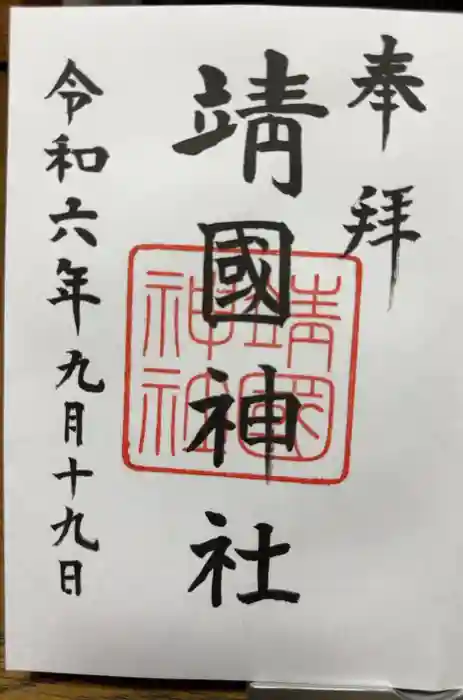 奉拝
靖國神社
靖國
神社
令和六年九月十九日